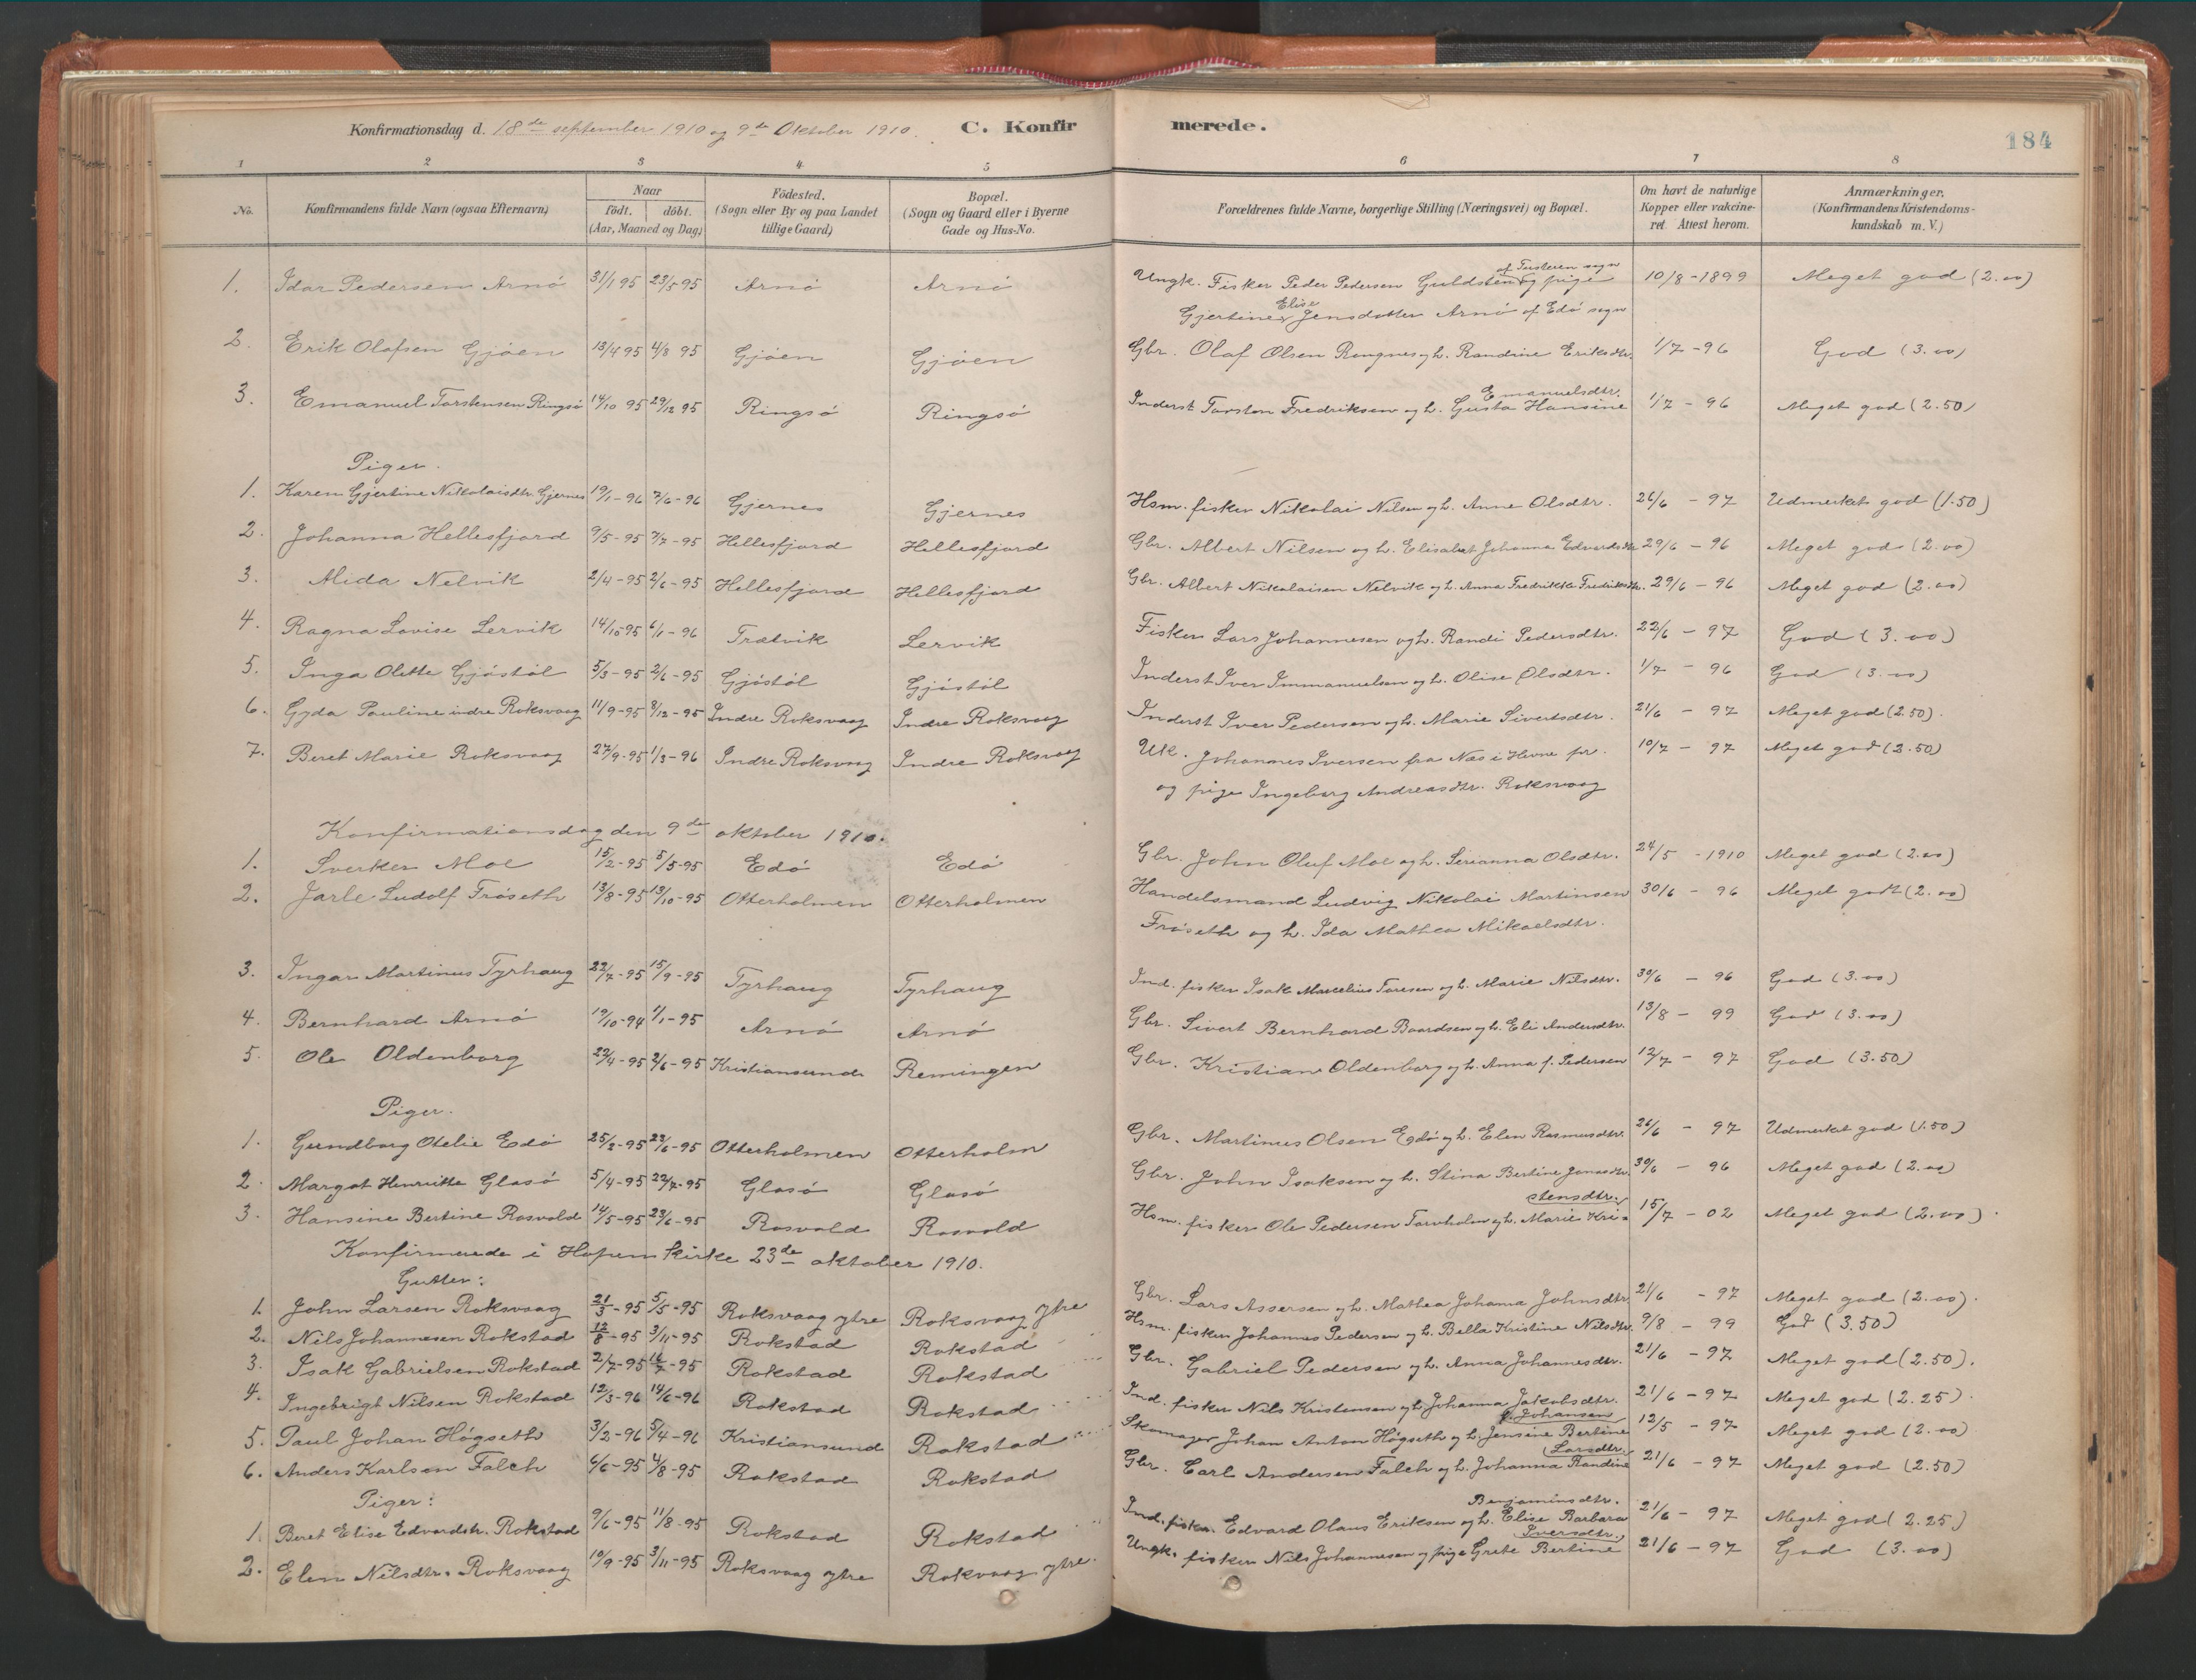 Konfirmationsdag d. 18de september 1910 og 9de Oktober 1910. C. Konfirmerede. 184
1 2 3 4 5 6 7 8
No. Konfirmandens fulde Navn (ogsaa Efternavn) Naar födt. döbt. (Aar, Maaned og Dag) Födested. (Sogn eller By og paa Landet tillige Gaard) Bopæl. (Sogn og Gaard eller i Byerne Gade og Hus-No. Forældrenes fulde Navne, borgerlige Stilling (Næringsvei) og Bopæl. Om havt de naturlige Kopper eller vakcineret. Attest herom. Anmærkninger. (Konfirmandens Kristendomskundskab m. V.)
1. Idar Pedersen Arnö 31/1 95 23/5 95 Arnö Arnö Ungk. Fisker Peder Pedersen Guldsten af Tusteren sogn og pige 10/8-1899 Meget god (2.00)
Gjertine Elise Jensdatter Arnö af Edö sogn
2. Erik Olafsen Gjöen 13/4 95 4/8 95 Gjöen Gjöen Gbr. Olaf Olsen Rongnes og h. Randine Eriksdtr. 1/7-96 God (3.00)
3. Emanuel Torstensen Ringsö 14/10 95 29/12 95 Ringsö Ringsö Inderst Torsten Fredriksen og h. Gusta Hansine Emanuelsdtr. 1/7-96 Meget god (2.50)
Piger.
1. Karen Gjertine Nikolaisdtr. Gjernes 19/1-96 7/6-96 Gjernes Gjernes Hsm. fisker Nikolai Nilsen og h. Anne Olsdtr. 26/6-97 Udmerket god (1.50)
2. Johanna Hellesfjord 9/5-95 7/7-95 Hellesfjord Hellesfjord Gbr. Albert Nilsen og h. Elisabet Johanna Edvardsdtr 29/6-96 Meget god (2.00)
3. Alida Nelvik 2/4-95 2/6-95 Hellesfjord Hellesfjord Gbr. Albert Nikolaisen Nelvik og h. Anna Fredrikke Fredriksdtr. 29/6-96 Meget god (2.00)
4. Ragna Lovise Lervik 14/10-95 6/1-96 Trætvik Lervik Fisker Lars Johannesen og h. Randi Pedersdtr. 22/6-97 God (3.00)
5. Inga Olette Gjöstöl 5/3-95 2/6-95 Gjöstöl Gjöstöl Inderst Iver Immanuelsen og h. Olise Olsdtr. 1/7-96 God (3.00)
6. Gyda Pauline indre Roksvaag 11/9-95 8/12-95 Indre Roksvaag Indre Roksvaag Inderst Iver Pedersen og h. Marie Sivertsdtr. 21/6-97 Meget god (2.50).
7. Beret Marie Roksvaag 27/9-95 1/3-96 Indre Roksvaag Indre Roksvaag Uk. Johannes Iversen fra Næs i Hevne pr. 10/7-97 Meget god (2.50)
og pige Ingeborg Andreasdtr. Roksvaag
Konfirmationsdag den 9de oktober 1910.
1. Sverker Moe 15/2-95 5/5-95 Edö Edö Gbr. John Oluf Moe og h. Serianna Olsdtr. 24/5-1910 Meget god (2.00)
2. Jarle Ludolf Fröseth 13/8-95 13/10-95 Otterholmen Otterholmen Handelsmand Ludvig Nikolai Martinsen 30/6-96 Meget godt (2.00)
Fröseth og h. Ida Mathea Mikaelsdtr.
3. Ingar Martinus Tyrhaug 22/7-95 15/9-95 Tyrhaug Tyrhaug Ind. fisker Isak Marcelius Toresen og h. Marie Nilsdtr. 30/6-96 God (3.00)
4. Bernhard Arnö 19/10-94 1/1-95 Arnö Arnö Gbr. Sivert Bernhard Baardsen og h. Eli Andersdtr. 13/8-99 God (3.00)
5. Ole Oldenborg 22/4-95 2/6-95 Kristiansund Remingen Gbr. Kristian Oldenborg og h. Anna f. Pedersen 12/7-97 God (3.50)
Piger.
1. Gundborg Otelie Edö 25/2-95 23/6-95 Otterholmen Otterholm Gbr. Martinus Olsen Edö og h. Elen Rasmusdtr. 26/6-97 Udmerket god (1.50)
2. Margot Henriette Glasö 5/4-95 22/7-95 Glasö Glasö Gbr. John Isaksen og h. Stina Bertine Jonasdtr. 30/6-96 Meget god (2.00)
3. Hansine Bertine Rosvold 14/5-95 23/6-95 Rosvold Rosvold Hsm. fisker Ole Pedersen Torvholm og h. Marie Kristensdtr. 15/7-02 Meget god (2.00).
Konfirmerede i Hopens kirke 23de oktober 1910.
Gutter:
1. John Larsen Roksvaag 21/3-95 5/5-95 Roksvaag ytre Roksvaag ytre Gbr. Lars Assersen og h. Mathea Johanna Johnsdtr 21/6-97 Meget god (2.00).
2. Nils Johannesen Rokstad 12/8-95 3/11-95 Rokstad Rokstad Hsm. fisker Johannes Pedersen og h. Bella Kristine Nilsdtr. 9/8-99 God (3.50)
3. Isak Gabrielsen Rokstad 2/7-95 -95 Rokstad Rokstad Gbr. Gabriel Pedersen og h. Anna Johannesdtr. 21/6-97 Meget god (2.50).
4. Ingebrigt Nilsen Rokstad 12/3-96 14/6-96 Rokstad Rokstad Ind. fisker Nils Kristensen og h. Johanna Jakobsdtr. 21/6-97 Meget god (2.25)
5. Paul Johan Högseth 3/2-96 5/4-96 Kristiansund Rokstad Skomager Johan Anton Högseth og h. Jensine Bertine f. Johansen 12/5-97 Meget god (2.00)
6. Anders Karlsen Falch 6/6-95 4/8-95 Rokstad Rokstad Gbr. Carl Andersen Falch og h. Johanna Randine Larsdtr. 21/6-97 Meget god (2.50)
Piger:
1. Beret Elise Edvardsdtr. Rokstad 9/6-95 11/8-95 Rokstad Rokstad Ind. fisker Edvard Olaus Eriksen og h. Elise Barbara Benjaminsdtr. 21/6-97 Meget god (2.25)
2. Elen Nilsdtr. Roksvaag 10/9-95 3/11-95 Roksvaag ytre Rokvaag ytre. Ungk. fisker Nils Johannesen og pige Grete Bertine Iversdtr. 21/6-97 God (3.00)